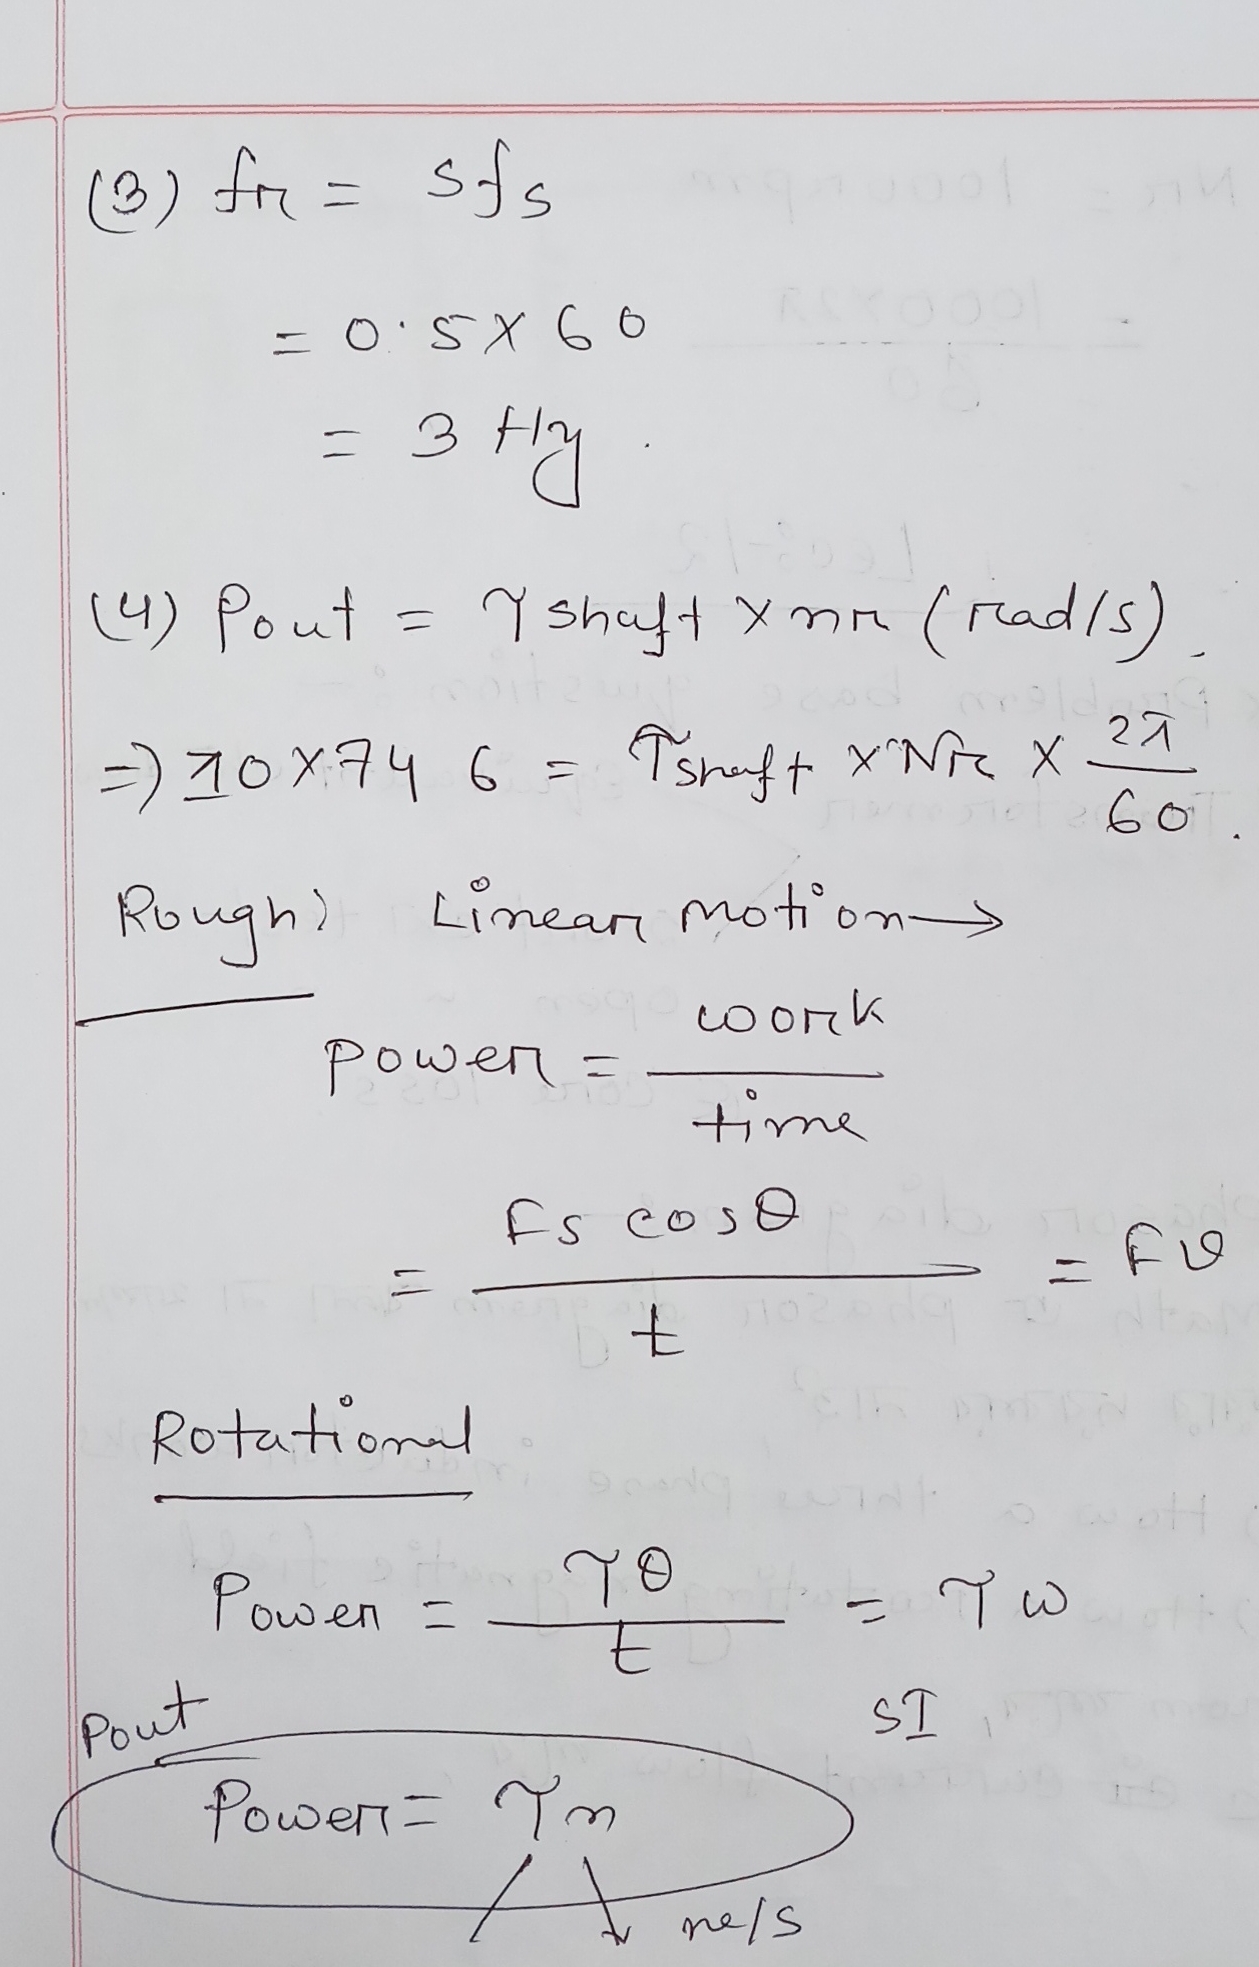 (3) fr = sfs
= 0.5 x 60
= 3 Hz
(4) Pout = τshaft x nr (rad/s).
=) 10 x 746 = τshaft x Nr x 2π/60.
Rough) Linear motion →
power = work/time
= Fs cosθ/t = Fv
Rotational
Power = τθ/t = τω
Pout SI
Power = τn